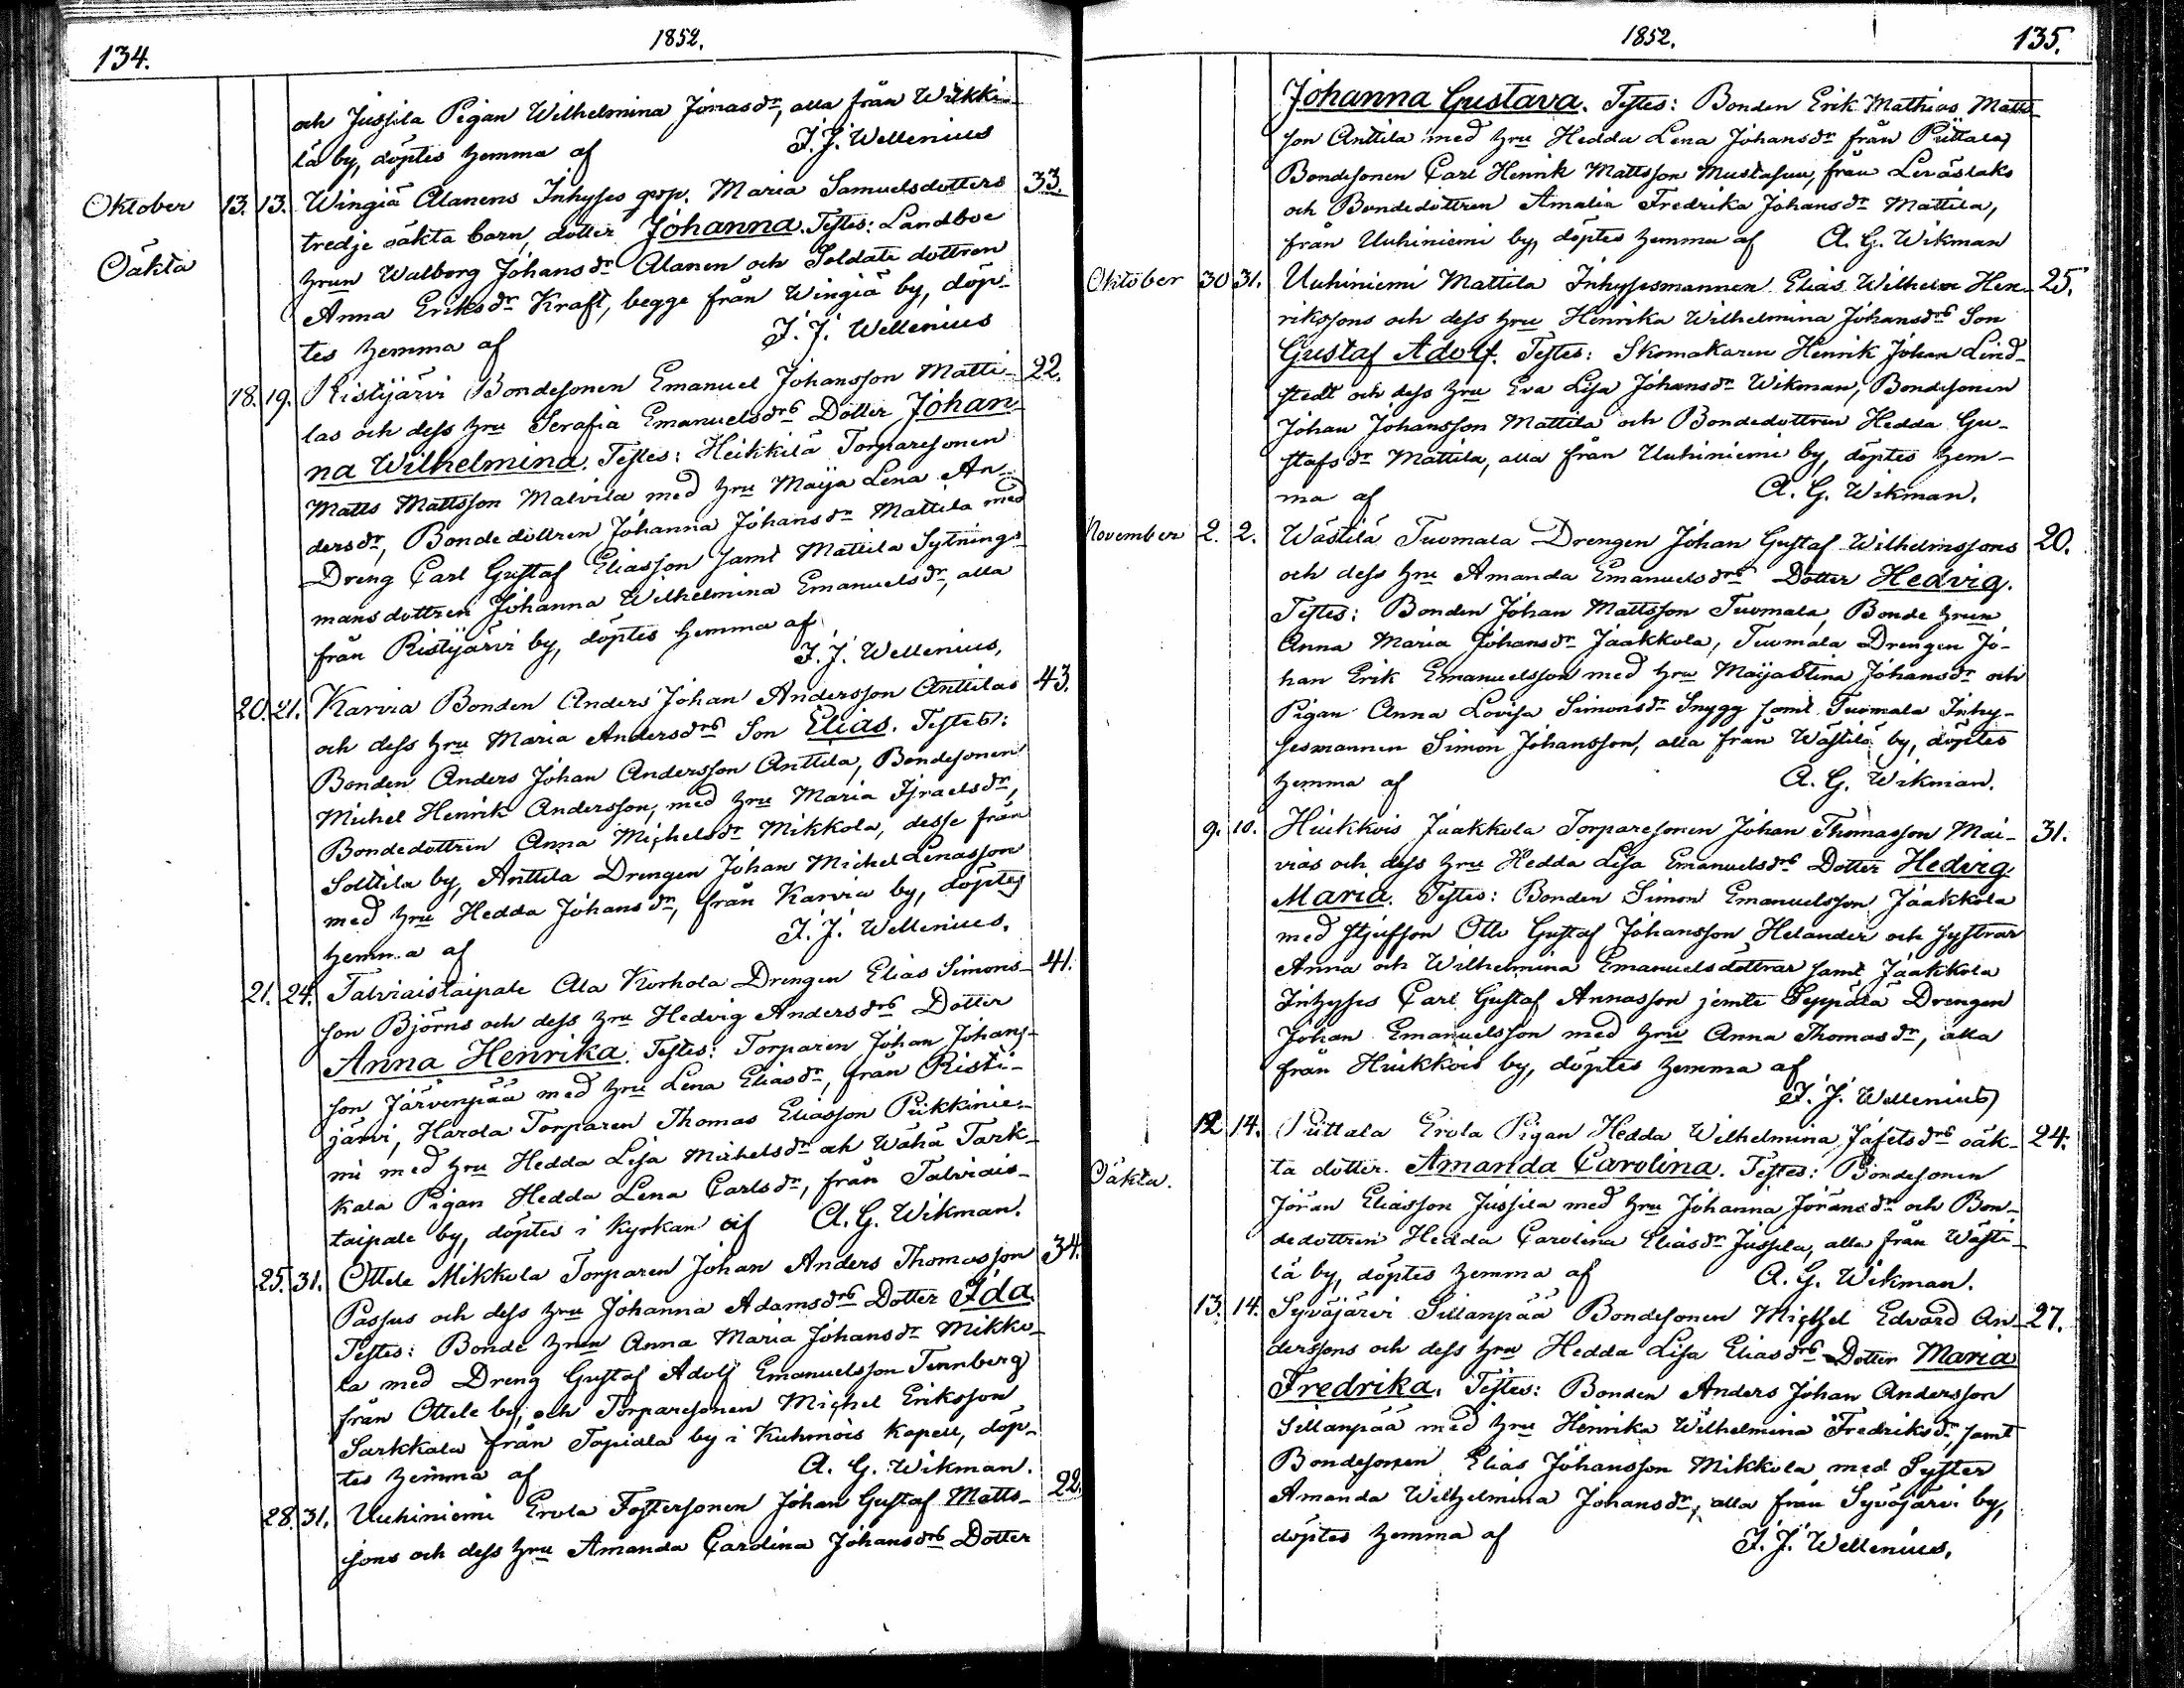 134.
1852.
och Jussila Pigan Wilhelmina Jonasdr, alla från Wikki-
lä by, döptes hemma af J. J. Wellenius
Oktober 13. 13. Wingiä Alanens Inhyses qvp. Maria Samuelsdotters 33.
Oäkta tredje oäkta barn, dotter Johanna. Testes: Landboe
hrun Walborg Johansdr Alanen och Soldate dottren
Anna Eriksdr Kraft, begge från Wingiä by, döp-
tes hemma af J. J. Wellenius
18. 19. Ristijärvi Bondesonen Emanuel Johansson Matti- 22.
las och dess hru Serafia Emanuelsdrs Dotter Johan-
na Wilhelmina. Testes: Heikkilä Torparesonen
Matts Mattsson Malvila med hru Maija Lena An-
dersdr, Bondedottren Johanna Johansdr Mattila med
Dreng Carl Gustaf Eliasson samt Mattila Sytnings-
mansdottren Johanna Wilhelmina Emanuelsdr, alla
från Ristijärvi by, döptes hemma af
J. J. Wellenius,
20. 21. Karvia Bonden Anders Johan Andersson Anttilas 43.
och dess hru Maria Andersdrs Son Elias. Testes:
Bonden Anders Johan Andersson Anttila, Bondesonen
Michel Henrik Andersson, med hru Maria Israelsdr,
Bondedottren Anna Michelsdr Mikkola, desse från
Solttila by, Anttila Drengen Johan Michel Lenasson
med hru Hedda Johansdr, från Karvia by, döptes
hemma af J. J. Wellenius.
21. 24. Talviaistaipale Ala Korhola Drengen Elias Simons- 41.
son Björns och dess hru Hedvig Andersdrs Dotter
Anna Henrika. Testes: Torparen Johan Johans-
son Järvenpää med hru Lena Eliasdr, från Risti-
järvi, Harola Torparen Thomas Eliasson Pukkinie-
mi med hru Hedda Lisa Michelsdr och Wähä Tark-
kala Pigan Hedda Lena Carlsdr, från Talviais-
taipale by, döptes i Kyrkan af A. G. Wikman.
25. 31. Ottele Mikkola Torparen Johan Anders Thomasson 34.
Passus och dess hru Johanna Adamsdrs Dotter Ida.
Testes: Bonde hrun Anna Maria Johansdr Mikko-
la med Dreng Gustaf Adolf Emanuelsson Tennberg
från Ottele by, och Torparesonen Michel Eriksson
Sarkkala från Tapiala by i Kuhmois Kapell, döp-
tes hemma af A. G. Wikman.
28. 31. Uuhiniemi Erola Fostersonen Johan Gustaf Matts- 22.
sons och dess hru Amanda Carolina Johansdrs Dotter
1852.
135.
Johanna Gustava. Testes: Bonden Erik Mathias Matts-
son Anttila med hru Hedda Lena Johansdr från Puttala,
Bondesonen Carl Henrik Mattsson Mustasuu, från Leväslaks
och Bondedottren Amalia Fredrika Johansdr Mattila,
från Uuhiniemi by, döptes hemma af A. G. Wikman
Oktober 30 31. Uuhiniemi Mattila Inhysesmannen Elias Wilhelm Hen- 25.
rikssons och dess hru Henrika Wilhelmina Johansdrs Son
Gustaf Adolf. Testes: Skomakaren Henrik Johan Lind-
stedt och dess hru Eva Lisa Johansdr Wikman, Bondesonen
Johan Johansson Mattila och Bondedottren Hedda Gu-
stafsdr Mattila, alla från Uuhiniemi by, döptes hem-
ma af A. G. Wikman.
November 2. 2. Wästilä Tuomala Drengen Johan Gustaf Wilhelmssons 20.
och dess hru Amanda Emanuelsdrs Dotter Hedvig.
Testes: Bonden Johan Mattsson Tuomala, Bonde hrun
Anna Maria Johansdr Jaakkola, Tuomala Drengen Jo-
han Erik Emanuelsson med hru Maija Stina Johansdr och
Pigan Anna Lovisa Simonsdr Snygg samt Tuomala Inhy-
sesmannen Simon Johansson, alla från Wästilä by, döptes
hemma af A. G. Wikman.
9. 10. Hiukkois Jaakkola Torparesonen Johan Thomasson Mai- 31.
vias och dess hru Hedda Lisa Emanuelsdrs Dotter Hedvig
Maria. Testes: Bonden Simon Emanuelsson Jaakkola
med stjufson Otto Gustaf Johansson Helander och systrar
Anna och Wilhelmina Emanuelsdottrar samt Jaakkola
Inhyses Carl Gustaf Annasson jemte Seppälä Drengen
Johan Emanuelsson med hru Anna Thomasdr, alla
från Hiukkois by, döptes hemma af
J. J. Wellenius
12 14. Puttala Erola Pigan Hedda Wilhelmina Jafetsdrs oäk- 24.
Oäkta. ta dotter. Amanda Carolina. Testes: Bondesonen
Jöran Eliasson Jussila med hru Johanna Jöransdr och Bon-
dedottren Hedda Carolina Eliasdr Jussila, alla från Wästi-
lä by, döptes hemma af A. G. Wikman.
13. 14. Syväjärvi Sillanpää Bondesonen Michel Edvard An- 27.
derssons och dess hru Hedda Lisa Eliasdrs Dotter Maria
Fredrika. Testes: Bonden Anders Johan Andersson
Sillanpää med hru Henrika Wilhelmina Fredriksdr, samt
Bondesonen Elias Johansson Mikkola med Syster
Amanda Wilhelmina Johansdr, alla från Syväjärvi by,
döptes hemma af J. J. Wellenius.